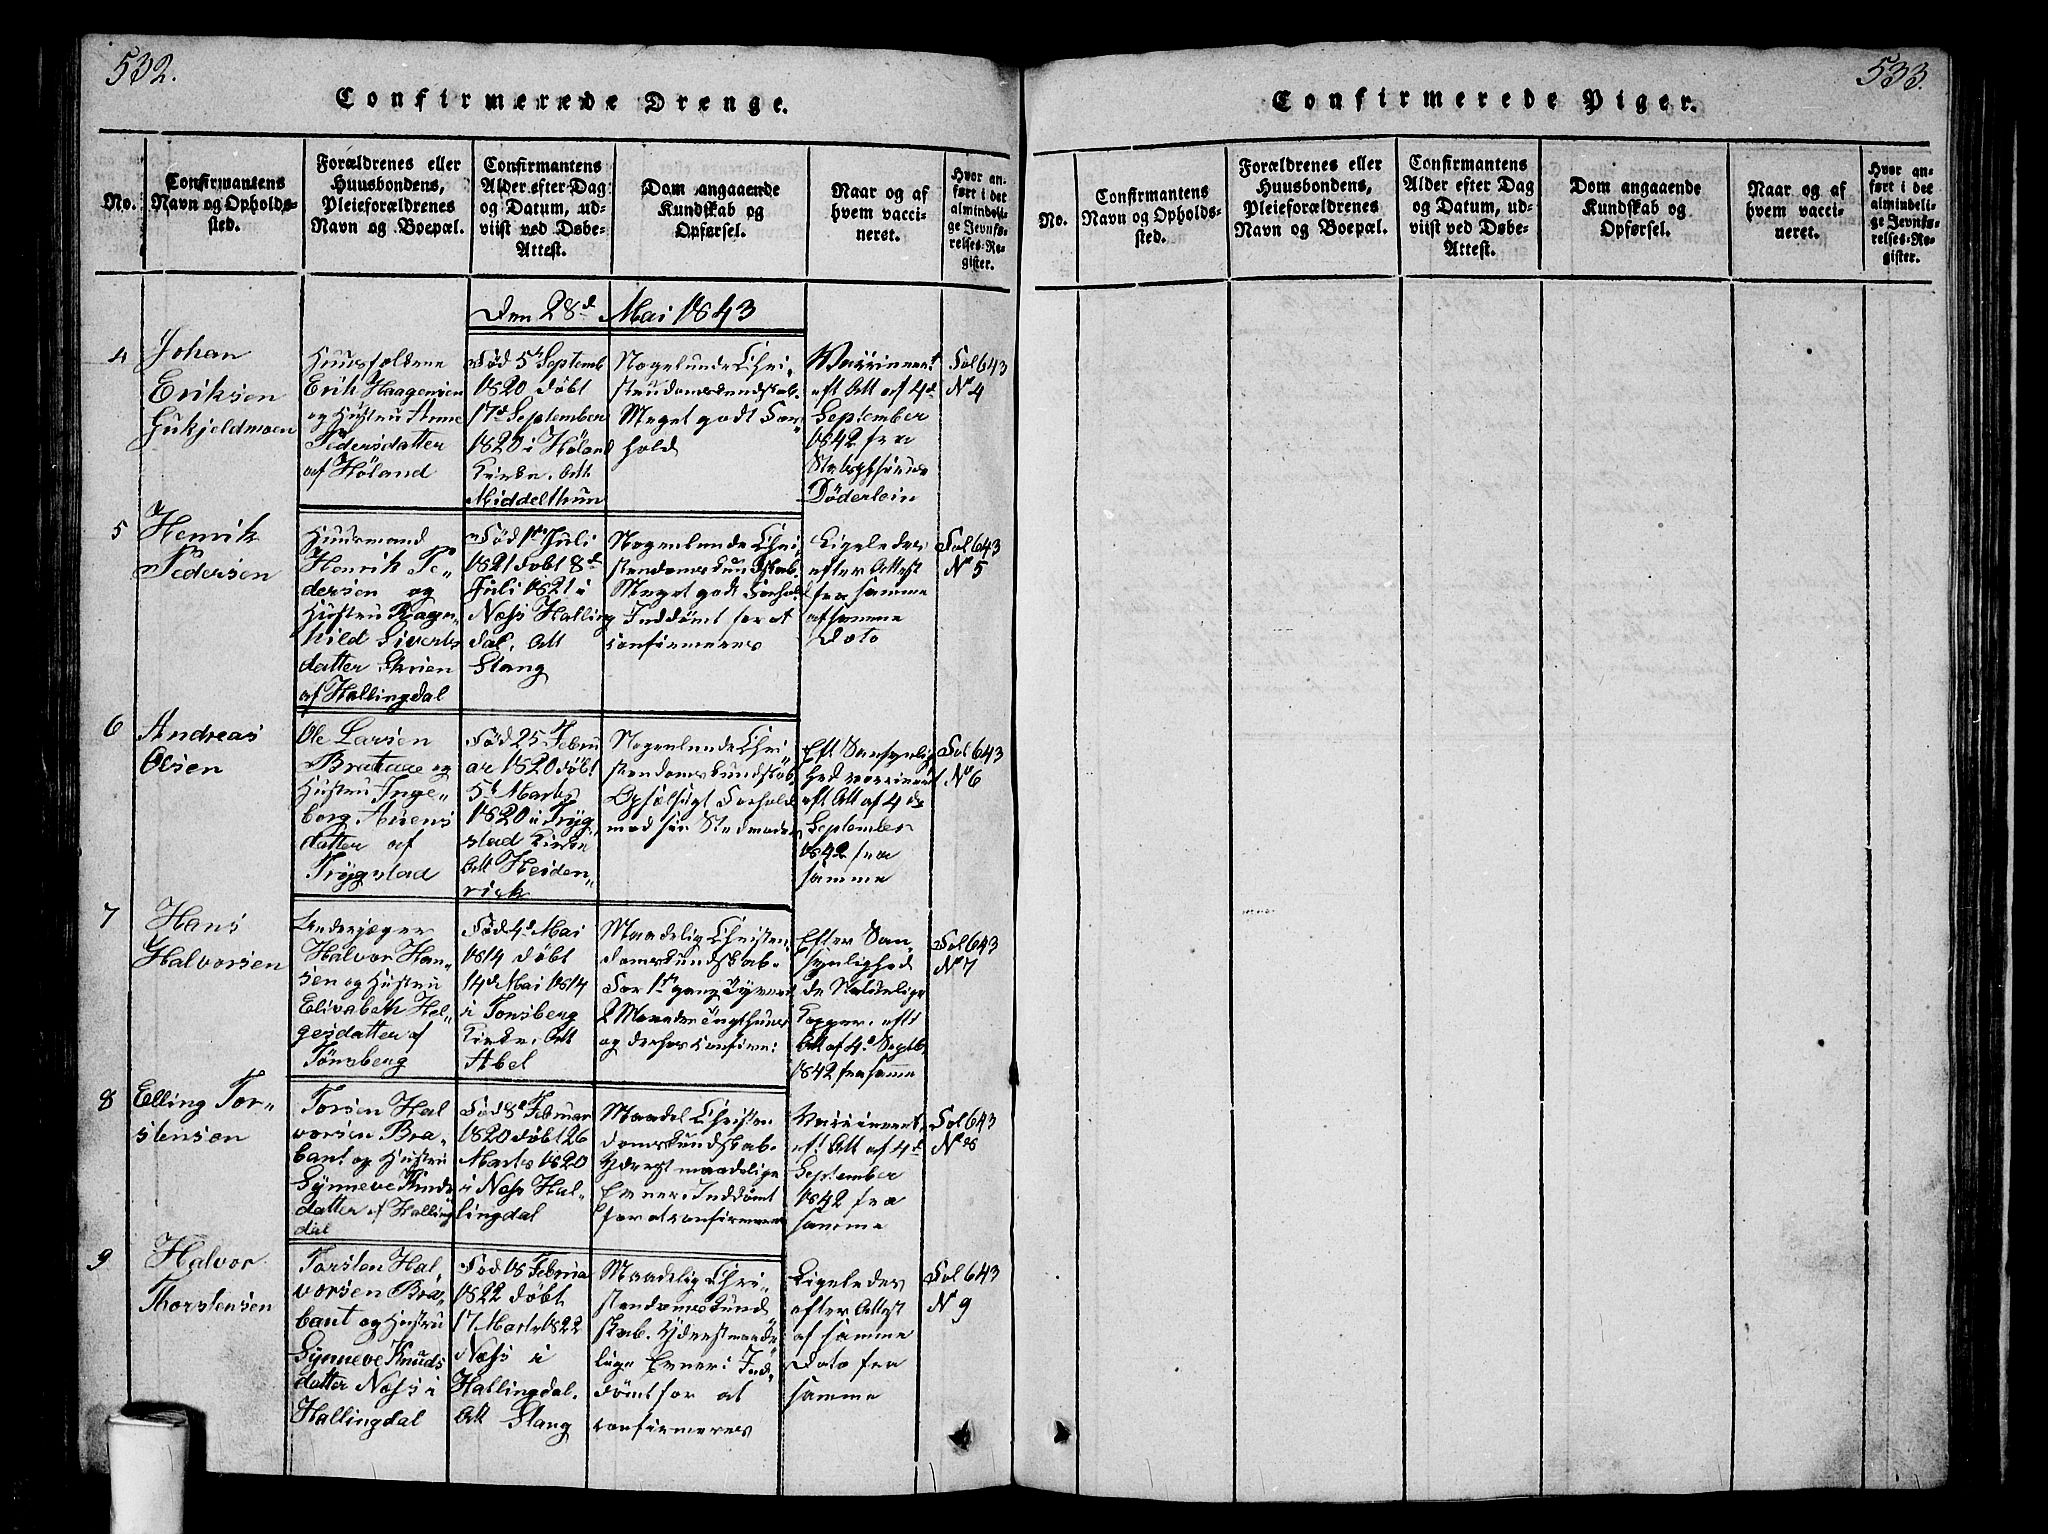 532.
Confirmerede Drenge.
No.
Confirmantens
Navn og Opholds-
sted.
Forældrenes eller
Huusbondens,
Pleieforældrenes
Navn og Boepæl.
Confirmantens
Alder efter Dag
og Datum, ud-
viist ved Døbe-
Attest.
Dom angaaende
Kundskab og
Opførsel.
Naar og af
hvem vacci-
neret.
Hvor an-
ført i det
almindeli-
ge Jevnfø-
relses-Re-
gister.
Den 28d Mai 1843
4
Johan
Eriksen
Gukjeldmoen
Huusfoldene
Erik Haagensen
og Hustru Anne
Pedersdatter
af Høland
Fød 5t Septemb
1820 døbt
17d September
1820 i Høland
Kirke. Att
Middelthun
Nogenlunde Chri-
stendomskundskab.
Meget godt For-
hold
Vaccineert
eft Att af 4d
September
1842 fra
Døderlein
Fol 643
No 4
5
Henrik
Pedersen
Huusmand
Henrik Pe-
dersen og
Hustru Ragn-
hild Siverts
datter Skrien
af Hallingdal
Fød 1st Juli
1821 døbt 8d
Juli 1821 i
Næss Halling
dal. Att
Stang
Nogenlunde Chri-
stendomskundskab.
Meget godt Forhol
Inddømt for at
confirmeres
Ligeledes
efter Attest
fra samme
af samme
Dato
Fol 643
No 5
6
Andreas
Olsen
Ole Larsen
Brataae og
Hustru Inge-
borg Arens
datter af
Trygstad
Fød 25 Febru
ar 1820 døbt
5t Marts
1820 i Tryg-
stad Kirke
Att Heiden-
rick
Nogenlunde Chri
stendomskundskab
Opfølsigt Forhold
mod sin Stedmoder
Eft Sansynlig
hed vaccineert
eft Att af 4 de
September
1842 fra
samme
Fol 643
No 6
7
Hans
Halvorsen
Underjæger
Halvor Han-
sen og Hustru
Elisabeth Hel-
gesdatter af
Tønsberg
Fød 4d Mai
1814 døbt
14d Mai 1814
i Tonsberg
Kirke. Att
Abel
Maadelig Christen-
domskundskab.
For 1st gang Tyverie
2 Maaneder Tugthuus
og derhos confire:
Efter San-
synlighed
de Naturlige
Kopper. eft
Att af 4d Septb
1842 fra samme
Fol 643
No 7
8
Elling Tor-
stensen
Torsen Hal
vorsen Bra-
bant og Hustru
Synneve Knuds
datter af Halling
dal
Fød 8d Februar
1820 døbt 26
Marts 1820
i Næss Hal-
lingdal
Maadel Christen
domskundskab.
Yderst maadelige
Evner. Inddømt
for at confirmeres
Vaccineert
eft Att af 4d
September
1842 fra
samme
Fol 643
No 8
9
Halvor
Thorstensen
Torsten Hal-
vorsen Bra-
bant og Hustru
Synneve Knuds
datter Næss i
Hallingdal
Fød 18 Februa
1822 døbt
17 Marts 1822
Næss i
Hallingdal.
Att Stang
Maadelig Chri-
stendomskund
skab. Yderst maade
lige Evner: Ind-
dømt for at
confirmeres
Ligeledes
efter Attest
af samme
Dato fra
samme
Fol 643
No 9
533.
Confirmerede Piger.
No.
Confirmantens
Navn og Opholds-
sted.
Forældrenes eller
Huusbondens,
Pleieforældrenes
Navn og Boepæl.
Confirmantens
Alder efter Dag
og Datum, ud-
viist ved Døbe-
Attest.
Dom angaaende
Kundskab og
Opførsel.
Naar og af
hvem vacci-
neret.
Hvor an-
ført i det
almindeli-
ge Jevnfø-
relses-Re-
gister.